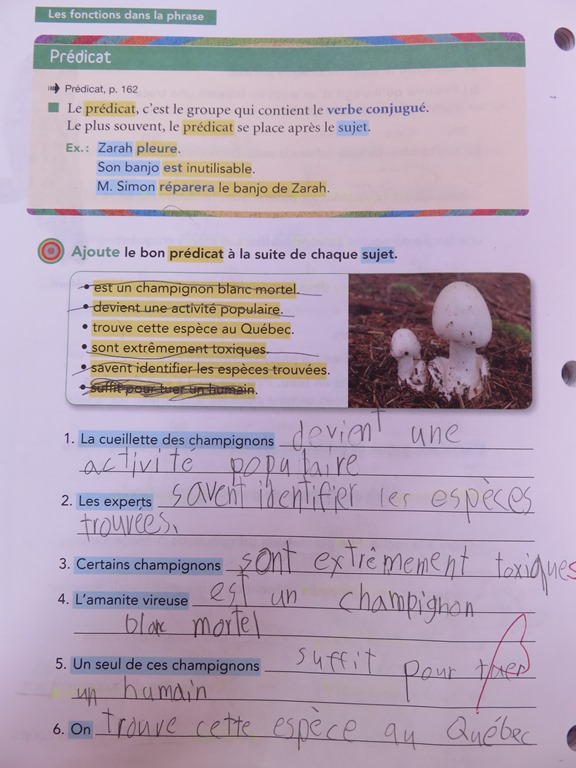 Les fonctions dans la phrase
Prédicat
Prédicat, p. 162
Le prédicat, c'est le groupe qui contient le verbe conjugué.
Le plus souvent, le prédicat se place après le sujet.
Ex.: Zarah pleure.
Son banjo est inutilisable.
M. Simon réparera le banjo de Zarah.
Ajoute le bon prédicat à la suite de chaque sujet.
• est un champignon blanc mortel.
• devient une activité populaire.
• trouve cette espèce au Québec.
• sont extrêmement toxiques.
• savent identifier les espèces trouvées.
• suffit pour tuer un humain.
1. La cueillette des champignons devient une
activité populaire
2. Les experts savent identifier les espèces
trouvées.
3. Certains champignons sont extrêmement toxiques
4. L'amanite vireuse est un champignon
blanc mortel
5. Un seul de ces champignons suffit pour tuer
un humain
6. On trouve cette espèce au Québec